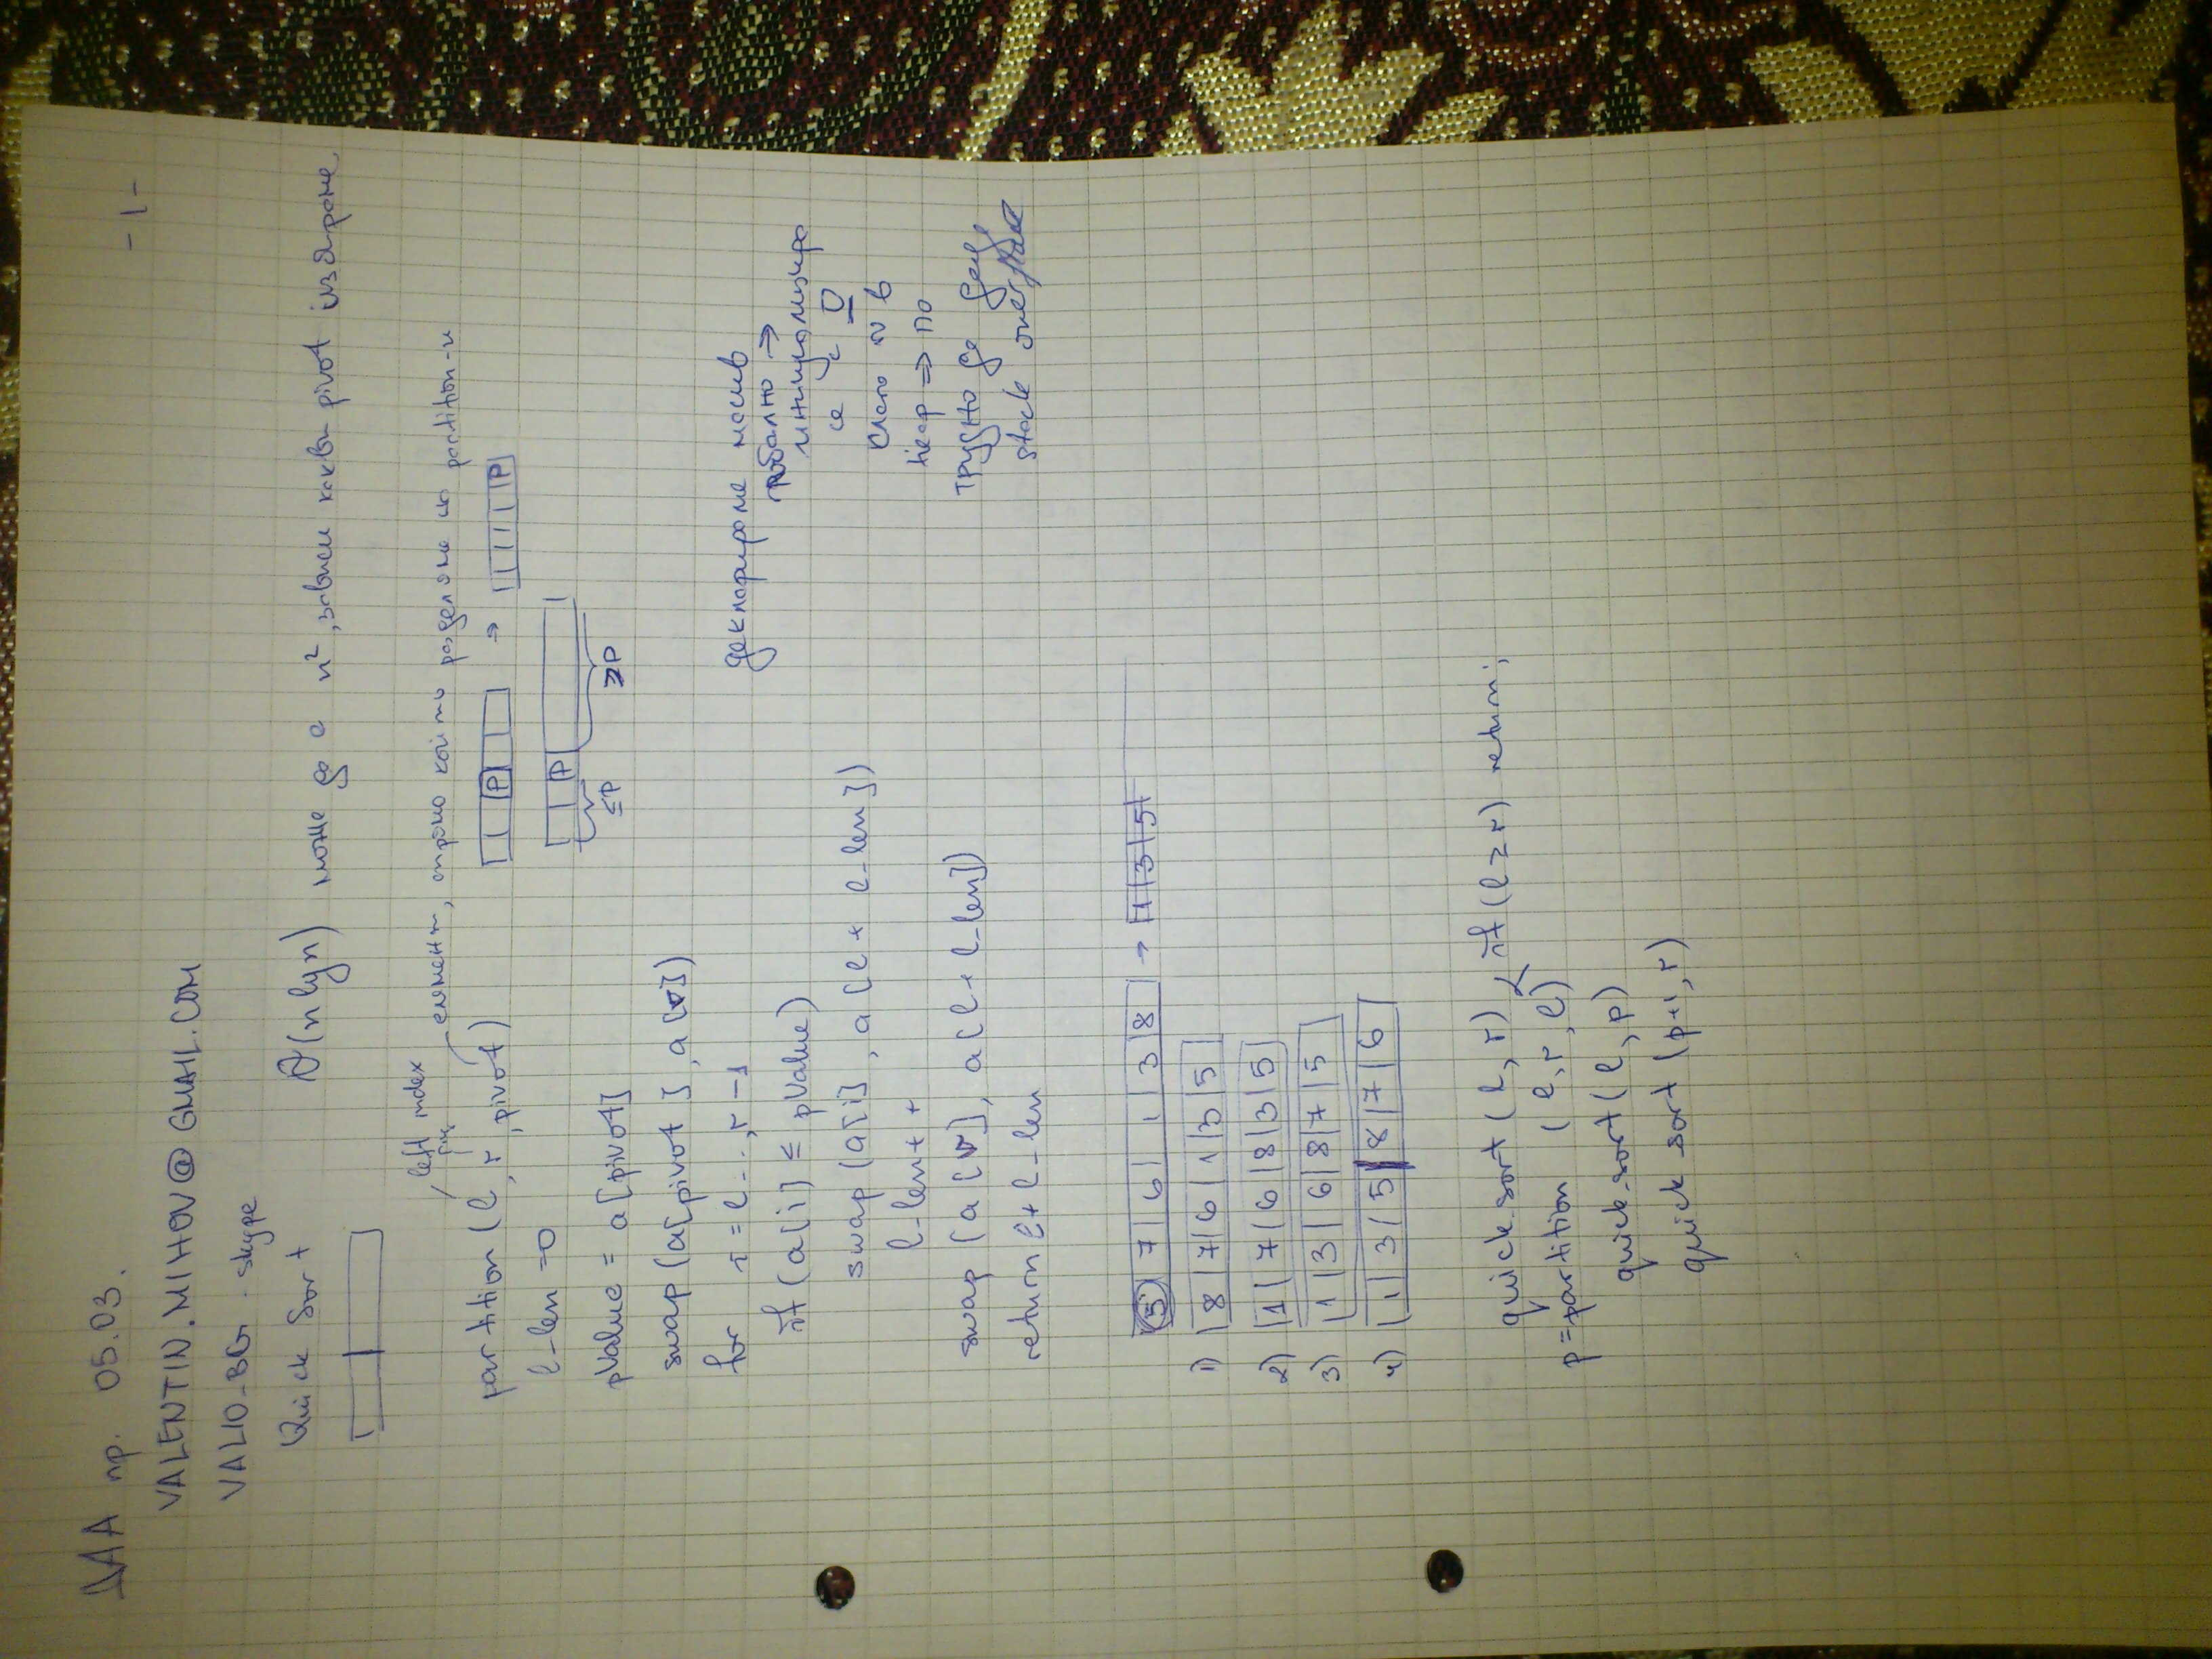 - 1 -
ДАА пр. 05.03.
VALENTIN.MIHOV@GMAIL.COM
VALIO_BG - skype
Quick Sort
θ(n lg n) може да е n², зависи какъв pivot изберем
left index
partition (l, r, pivot)
елемент, спрямо който разделяме partition-и
| | P | | ⇒ | | | | | P |
l_len = 0
| | P | |
≤P ≥P
pValue = a[pivot]
swap (a[pivot], a[r])
for i = l...r-1
if (a[i] ≤ pValue)
swap (a[i], a[l + l_len])
l_len++
swap (a[r], a[l + l_len])
return l + l_len
декларираме масив
глобално ⇒
инициализира
се с 0
също и в
heap ⇒ по
трудно да даде
stack overflow
5 | 7 | 6 | 1 | 3 | 8 → 1 | 3 | 5
1) 8 | 7 | 6 | 1 | 3 | 5
2) 1 | 7 | 6 | 8 | 3 | 5
3) 1 | 3 | 6 | 8 | 7 | 5
4) 1 | 3 | 5 | 8 | 7 | 6
quick_sort (l, r) { if (l ≥ r) return;
p = partition (l, r, l)
quick_sort (l, p)
quick sort (p+1, r)